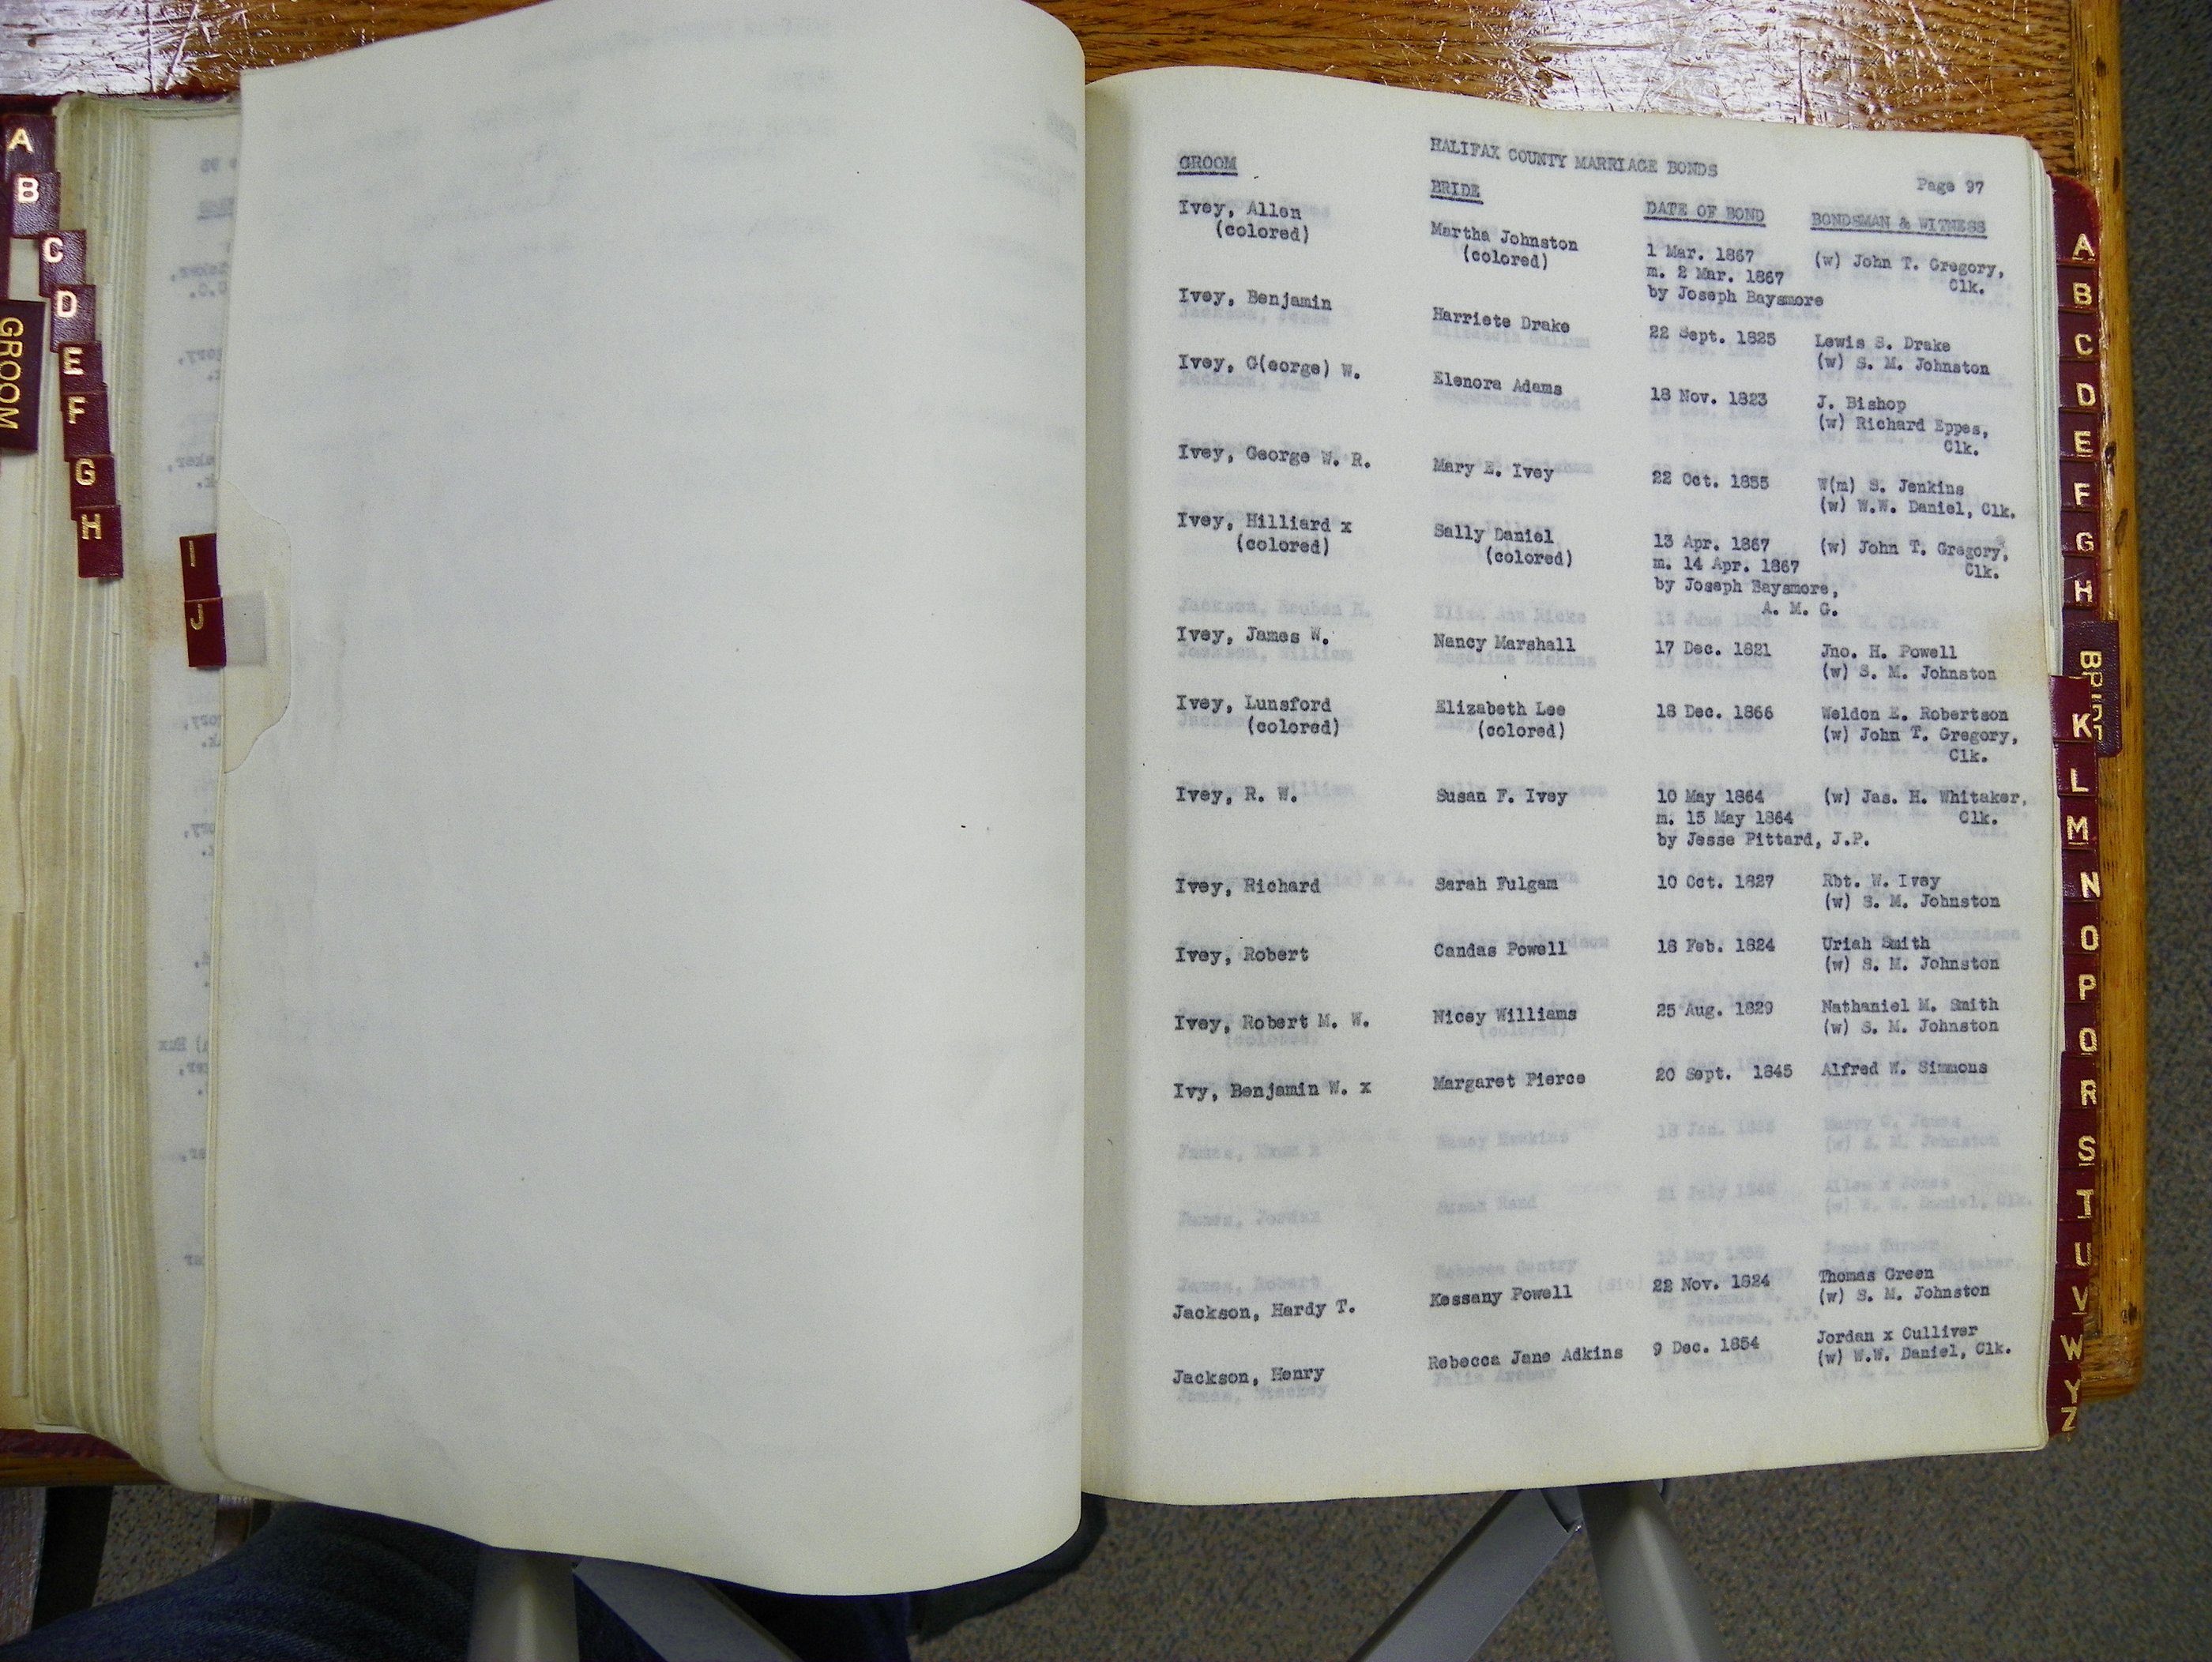 HALIFAX COUNTY MARRIAGE BONDS
Page 97
GROOM BRIDE DATE OF BOND BONDSMAN & WITNESS
Ivey, Allen Martha Johnston 1 Mar. 1867 (w) John T. Gregory,
(colored) (colored) m. 2 Mar. 1867 Clk.
by Joseph Baysmore
Ivey, Benjamin Harriete Drake 22 Sept. 1825 Lewis S. Drake
(w) S. M. Johnston
Ivey, G(eorge) W. Elenora Adams 18 Nov. 1823 J. Bishop
(w) Richard Eppes,
Clk.
Ivey, George W. R. Mary E. Ivey 22 Oct. 1855 W(m) S. Jenkins
(w) W.W. Daniel, Clk.
Ivey, Hilliard x Sally Daniel 13 Apr. 1867 (w) John T. Gregory,
(colored) (colored) m. 14 Apr. 1867 Clk.
by Joseph Baysmore,
A. M. G.
Ivey, James W. Nancy Marshall 17 Dec. 1821 Jno. H. Powell
(w) S. M. Johnston
Ivey, Lunsford Elizabeth Lee 18 Dec. 1866 Weldon E. Robertson
(colored) (colored) (w) John T. Gregory,
Clk.
Ivey, R. W. Susan F. Ivey 10 May 1864 (w) Jas. H. Whitaker,
m. 15 May 1864 Clk.
by Jesse Pittard, J.P.
Ivey, Richard Sarah Fulgam 10 Oct. 1827 Rbt. W. Ivey
(w) S. M. Johnston
Ivey, Robert Candas Powell 18 Feb. 1824 Uriah Smith
(w) S. M. Johnston
Ivey, Robert M. W. Nicey Williams 25 Aug. 1829 Nathaniel M. Smith
(w) S. M. Johnston
Ivy, Benjamin W. x Margaret Pierce 20 Sept. 1845 Alfred W. Simmons
Jackson, Hardy T. Kessany Powell 22 Nov. 1824 Thomas Green
(w) S. M. Johnston
Jackson, Henry Rebecca Jane Adkins 9 Dec. 1854 Jordan x Culliver
(w) W.W. Daniel, Clk.
A
B
C
D
E
F
G
H
I
J
GROOM
A
B
C
D
E
F
G
H
BRIDE
K
L
M
N
O
P
Q
R
S
T
U
V
W
Y
Z